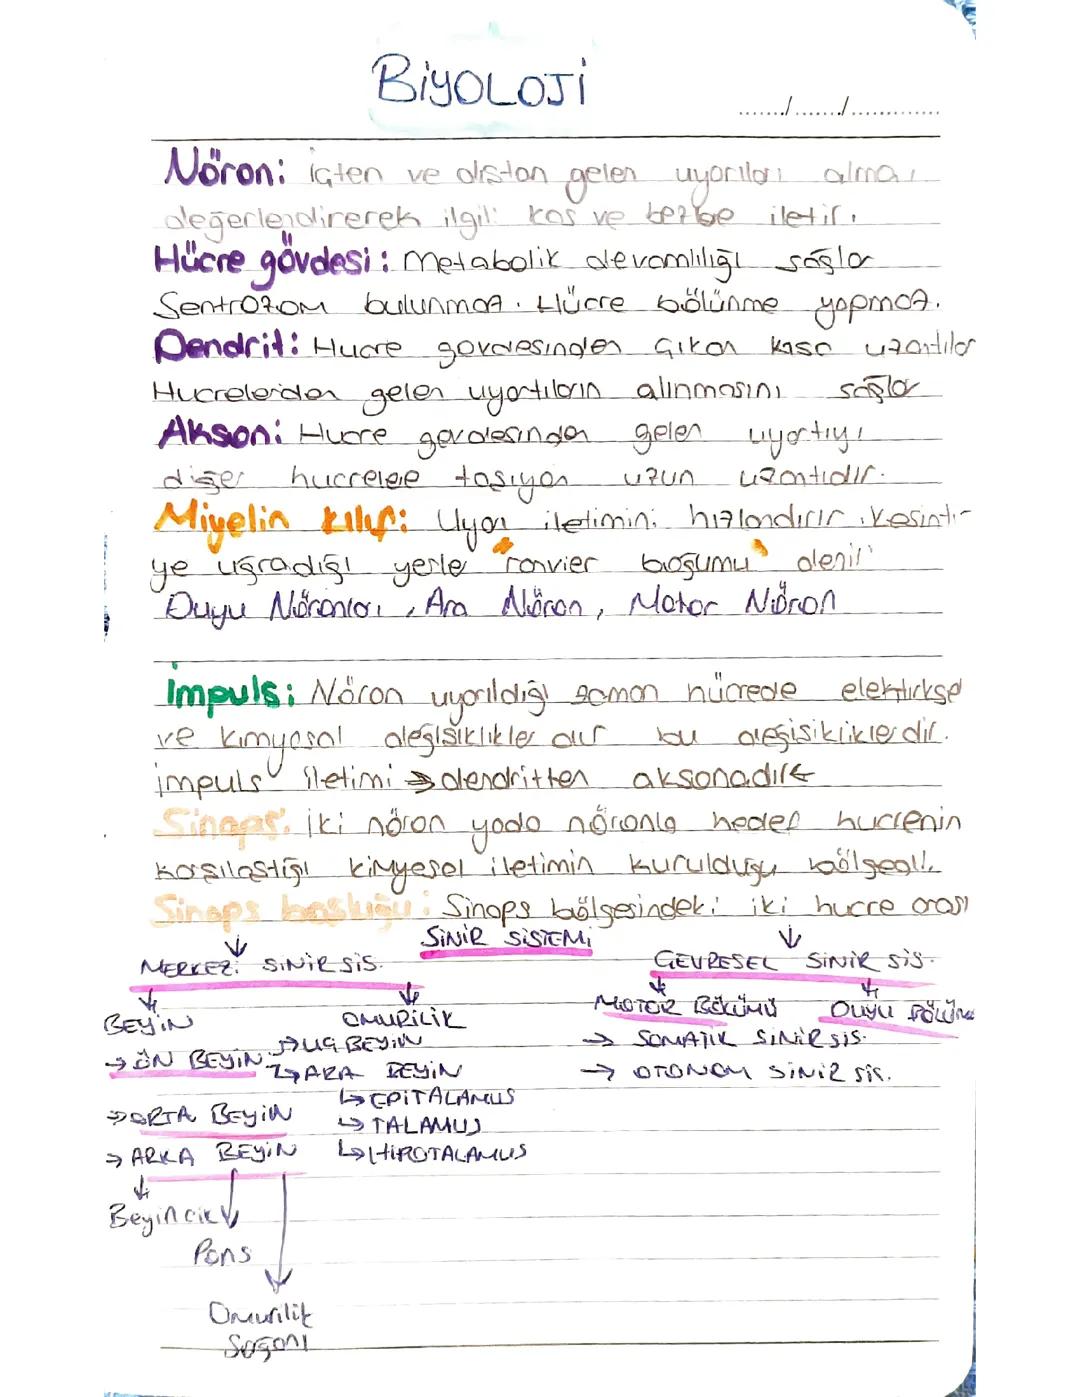 BİYOLOJİ
....../....../............
Nöron: içten ve dıştan gelen uyarıları alma,
değerlendirerek ilgili kas ve bezlere iletir.
Hücre gövdesi: Metabolik devamlılığı sağlar
Sentrozom bulunmaz. Hücre bölünme yapmaz.
Dendrit: Hucre govdesinden çıkan kısa uzantılar
Hucrelerden gelen uyartıların alınmasını sağlar
Akson: Hucre govdesinden gelen uyartıyı
diğer hucrelere taşıyan uzun uzantıdır.
Miyelin kılıf: Uyarı iletimini hızlandırır. Kesinti-
ye uğradığı yerler "ranvier boğumu" denir
Duyu Nöronları, Ara Nöron, Motor Nöron
İmpuls: Nöron uyarıldığı zaman hücrede elektirksel
ve kimyasal değişiklikler olur bu değişikliklerdir.
impuls iletimi → dendritten aksonadır ←
Sinaps: İki nöron yada nöronla hedef hucrenin
karşılaştığı kimyesel iletimin kurulduğu bölgedir.
Sinaps boşluğu: Sinaps bölgesindeki iki hucre arası
SİNİR SİSTEMİ
MERKEZİ SİNİR SİS.
ÇEVRESEL SİNİR SİS.
BEYİN
OMURİLİK
MOTOR BÖLÜMÜ
DUYU BÖLÜMÜ
→ ÖN BEYİN
→ UÇ BEYİN
→ ARA BEYİN
→ SOMATİK SİNİR SİS.
→ OTONOM SİNİR SİS.
↳ EPİTALAMUS
↳ TALAMUS
↳ HİPOTALAMUS
→ ORTA BEYİN
→ ARKA BEYİN
Beyincik
Pons
Omurilik
Soğanı